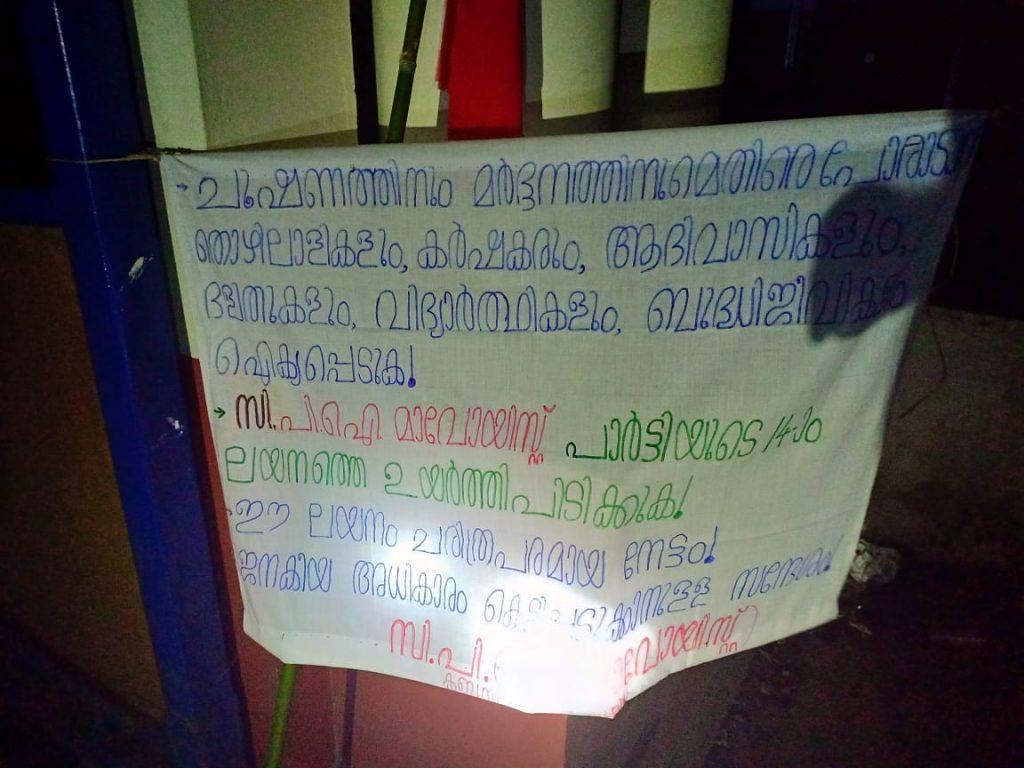 → ചൂഷണത്തിനും മർദ്ദനത്തിനുമെതിരെ പോരാടാൻ
തൊഴിലാളികളും, കർഷകരും, ആദിവാസികളും,
ദളിതുകളും, വിദ്യാർത്ഥികളും, ബുദ്ധിജീവികളും
ഐക്യപ്പെടുക!
→ സി.പി.ഐ മാവോയിസ്റ്റ് പാർട്ടിയുടെ 14-ാം
ലയനത്തെ ഉയർത്തിപിടിക്കുക!
ഈ ലയനം ചരിത്രപരമായ നേട്ടം!
ജനകീയ അധികാരം സന്ദേശം!
സി.പി.